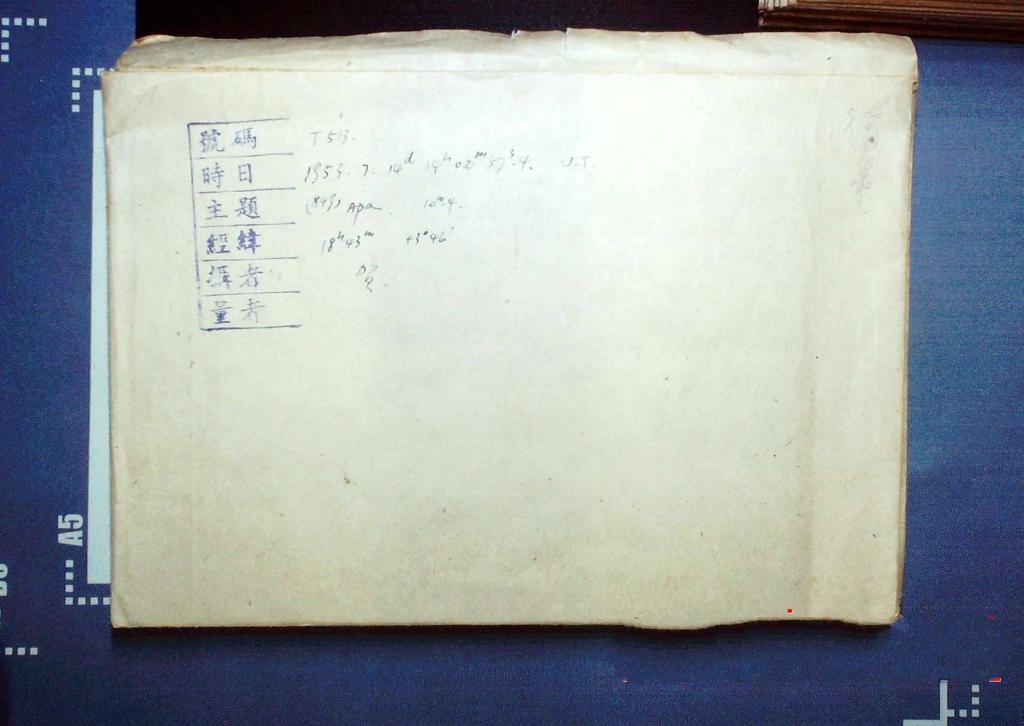 號碼 T 513.
時日 1953. 7. 14ᵈ 14ʰ 02ᵐ 57ˢ.4. U.T.
主題 (849) Ara 10ᵐ.4.
經緯 18ʰ43ᵐ +3°46′
攝者 賀.
量者
A5